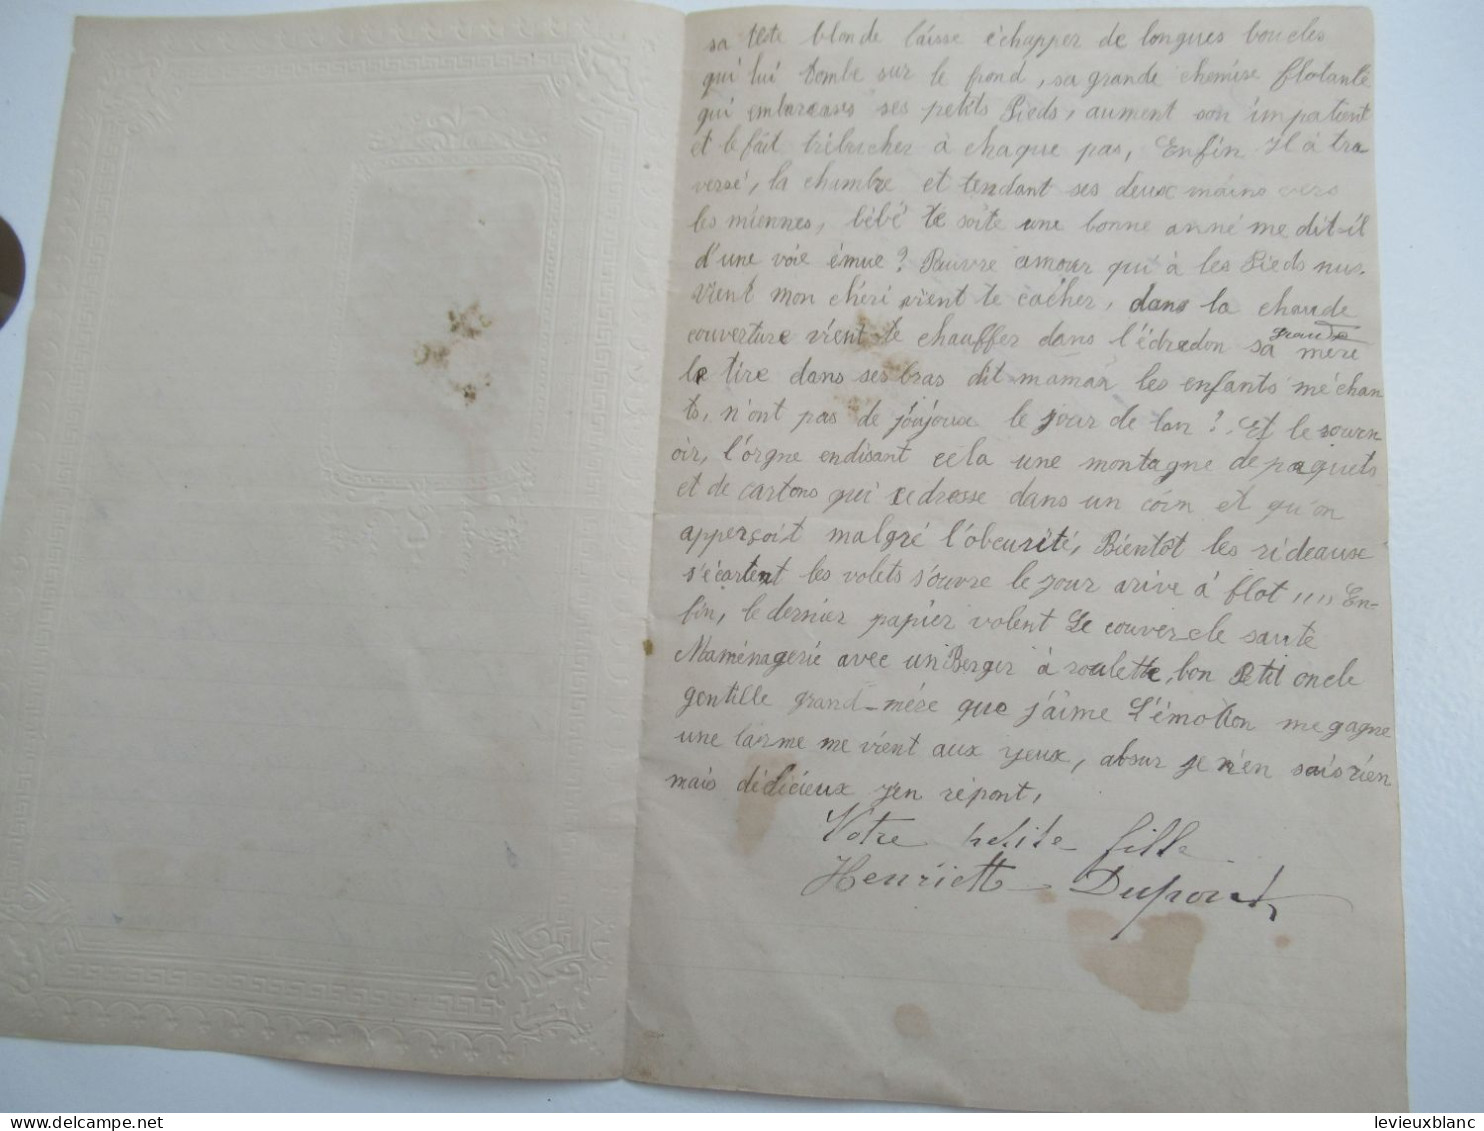 sa tête blonde laisse échapper de longues boucles
qui lui tombe sur le frond, sa grande chemise flotante
qui embarcases ses petits Pieds, aument son impatient
et le fait trébucher à chaque pas, Enfin Il à tra
versé, la chambre et tendant ses deux mains vers
les miennes, bébé te soite une bonne anné me dit-il
d'une voie émue? Pauvre amour qui à les Pieds nus.
Vient mon chéri vient te cacher, dans la chaude
couverture vient-te chauffer dans l'édredon sa grande mère
le tire dans ses bras dit maman les enfants méchan
ts, n'ont pas de joujoux le jour de lan? Et le sourn
oir, l'orgne endisant cela une montagne de paquets
et de cartons qui cedresse dans un coin et qu'on
apperçoit malgré l'obcurité, Bientôt les rideaux
s'écartent les volets s'ouvre le jour arive à flot ,,,, En-
fin, le dernier papier volent Le couvercle saute
Maménagerie avec un Berger à roulette, bon Petit oncle
gentille grand-mére que j'aime L'émotion me gagne
une larme me vient aux yeux, absur je n'en sais rien
mais délicieux j'en répont,
Votre petite fille
Henriette Dupont
levieuxblanc